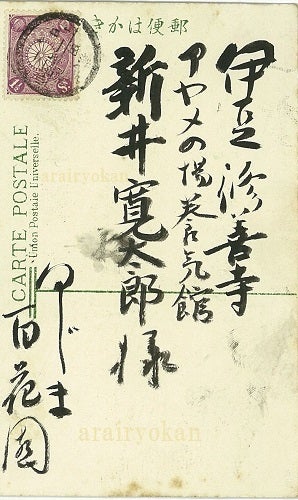 郵便はかき
伊豆修善寺
アヤメの湯養気館
新井寛太郎様
向じま
百花園
CARTE POSTALE
Union Postale Universelle.
arairyokan
arairyokan